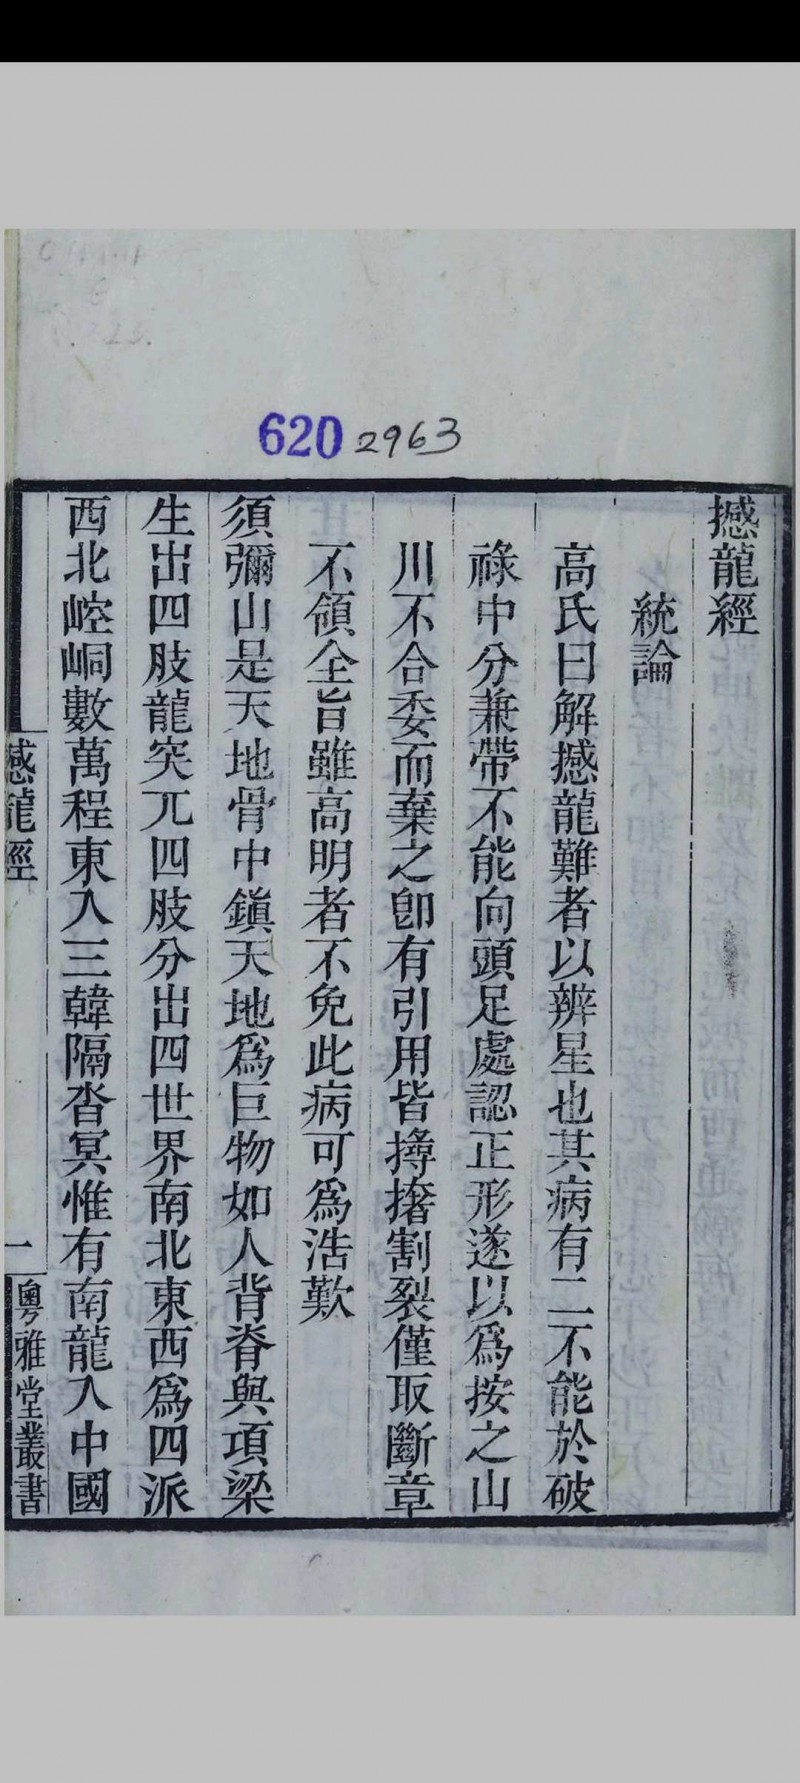 620 2963
撼龍經
統論
高氏曰解撼龍難者以辨星也其病有二不能於破
祿中分兼帶不能向頭足處認正形遂以爲按之山
川不合委而棄之卽有引用皆撏撦割裂僅取斷章
不領全旨雖高明者不免此病可爲浩歎
須彌山是天地骨中鎭天地爲巨物如人背脊與項梁
生出四肢龍突兀四肢分出四世界南北東西爲四派
西北崆峒數萬程東入三韓隔杳冥惟有南龍入中國
撼龍經
一
粵雅堂叢書